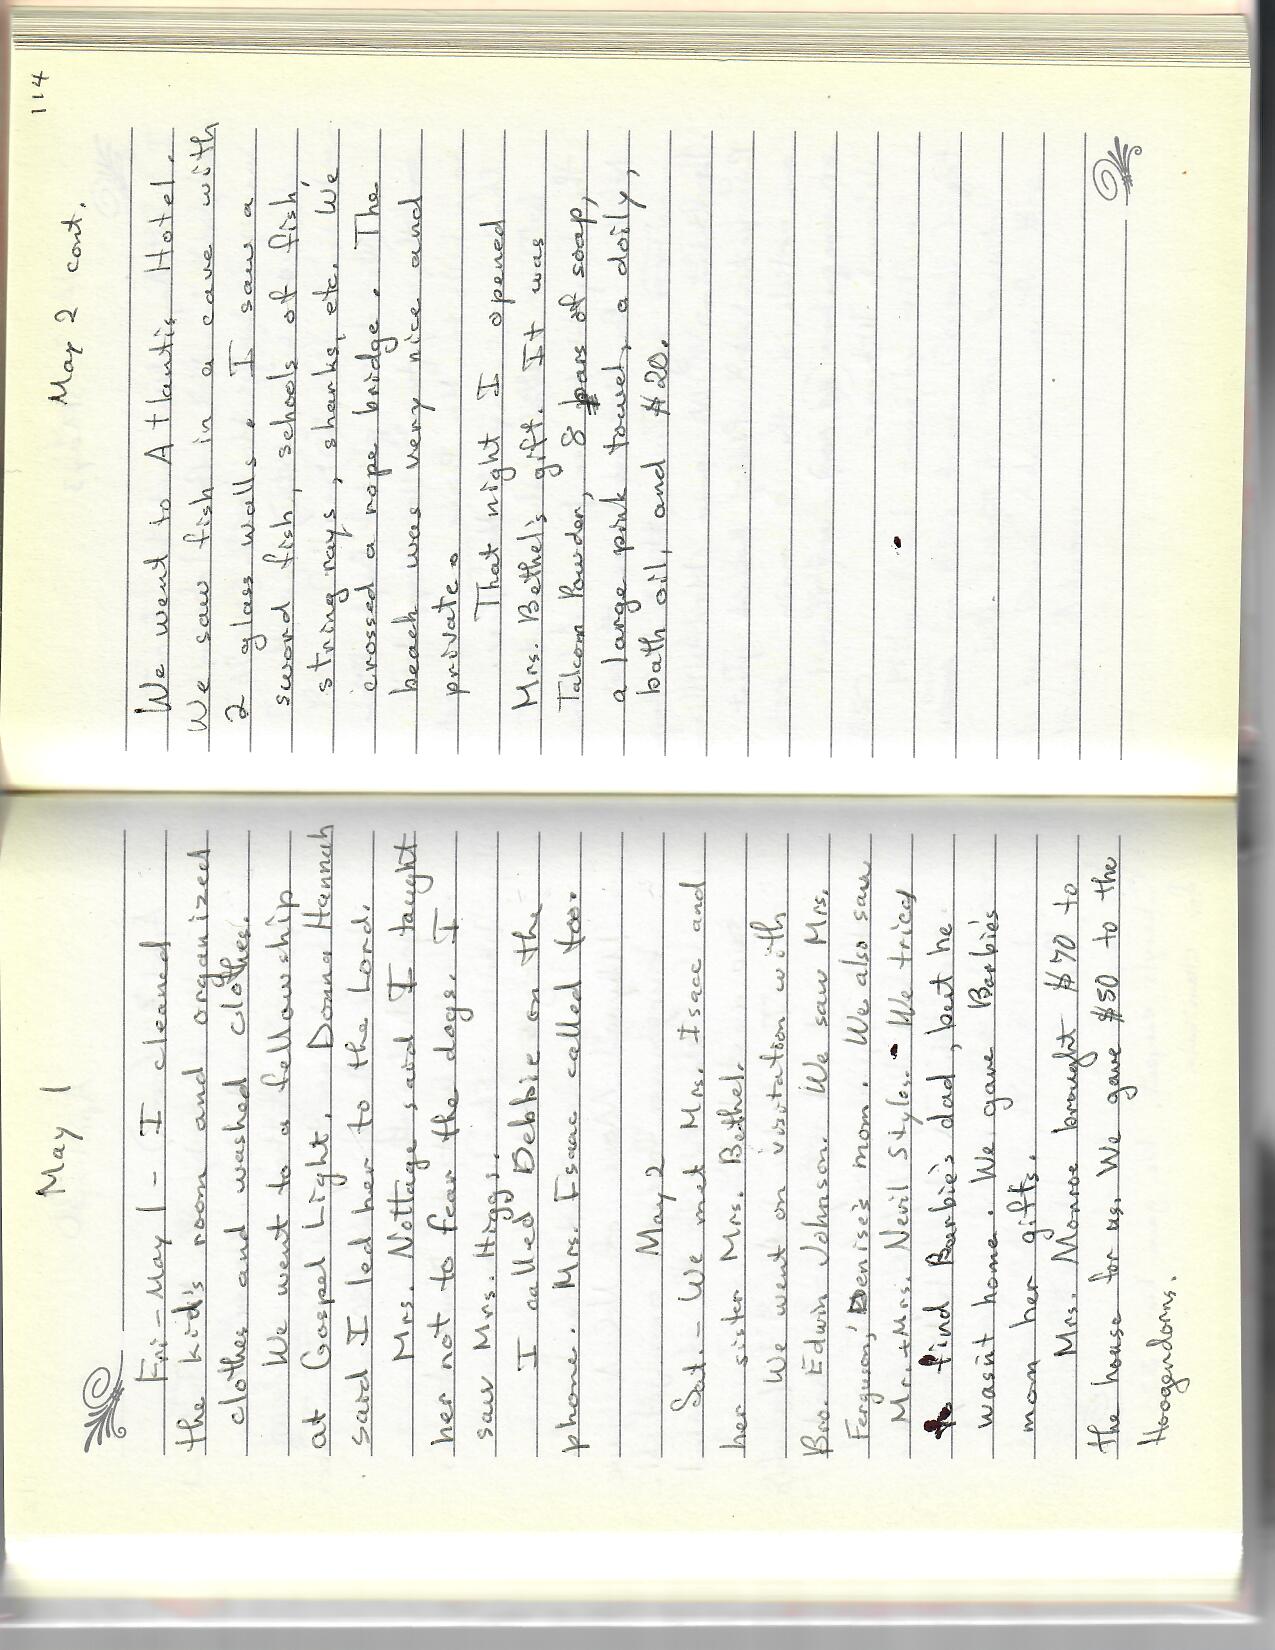 May 1
Fri - May 1 - I cleaned
the kid's room and organized
clothes and washed clothes.
We went to a fellowship
at Gospel Light. Donna Hannah
said I led her to the Lord.
Mrs. Nottage said I taught
her not to fear the dogs. I
saw Mrs. Higgs.
I called Debbie on the
phone. Mrs. Isaac called too.
May 2
Sat. - We met Mrs. Isaac and
her sister Mrs. Bethel.
We went on visitation with
Bro. Edwin Johnson. We saw Mrs.
Ferguson, Denise's mom. We also saw
Mr. + Mrs. Nevil Styles. We tried
to find Barbie's dad, but he
wasn't home. We gave Barbie's
mom her gifts.
Mrs. Monroe brought $70 to
the house for us. We gave $50 to the
Hoogendorns.
114
May 2 cont.
We went to Atlantis Hotel.
We saw fish in a cave with
2 glass walls. I saw a
sword fish, schools of fish,
string rays, sharks, etc. We
crossed a rope bridge. The
beach was very nice and
private.
That night I opened
Mrs. Bethel's gift. It was
Talcom Powder, 8 bars of soap,
a large pink towel, a doily,
bath oil, and $20.